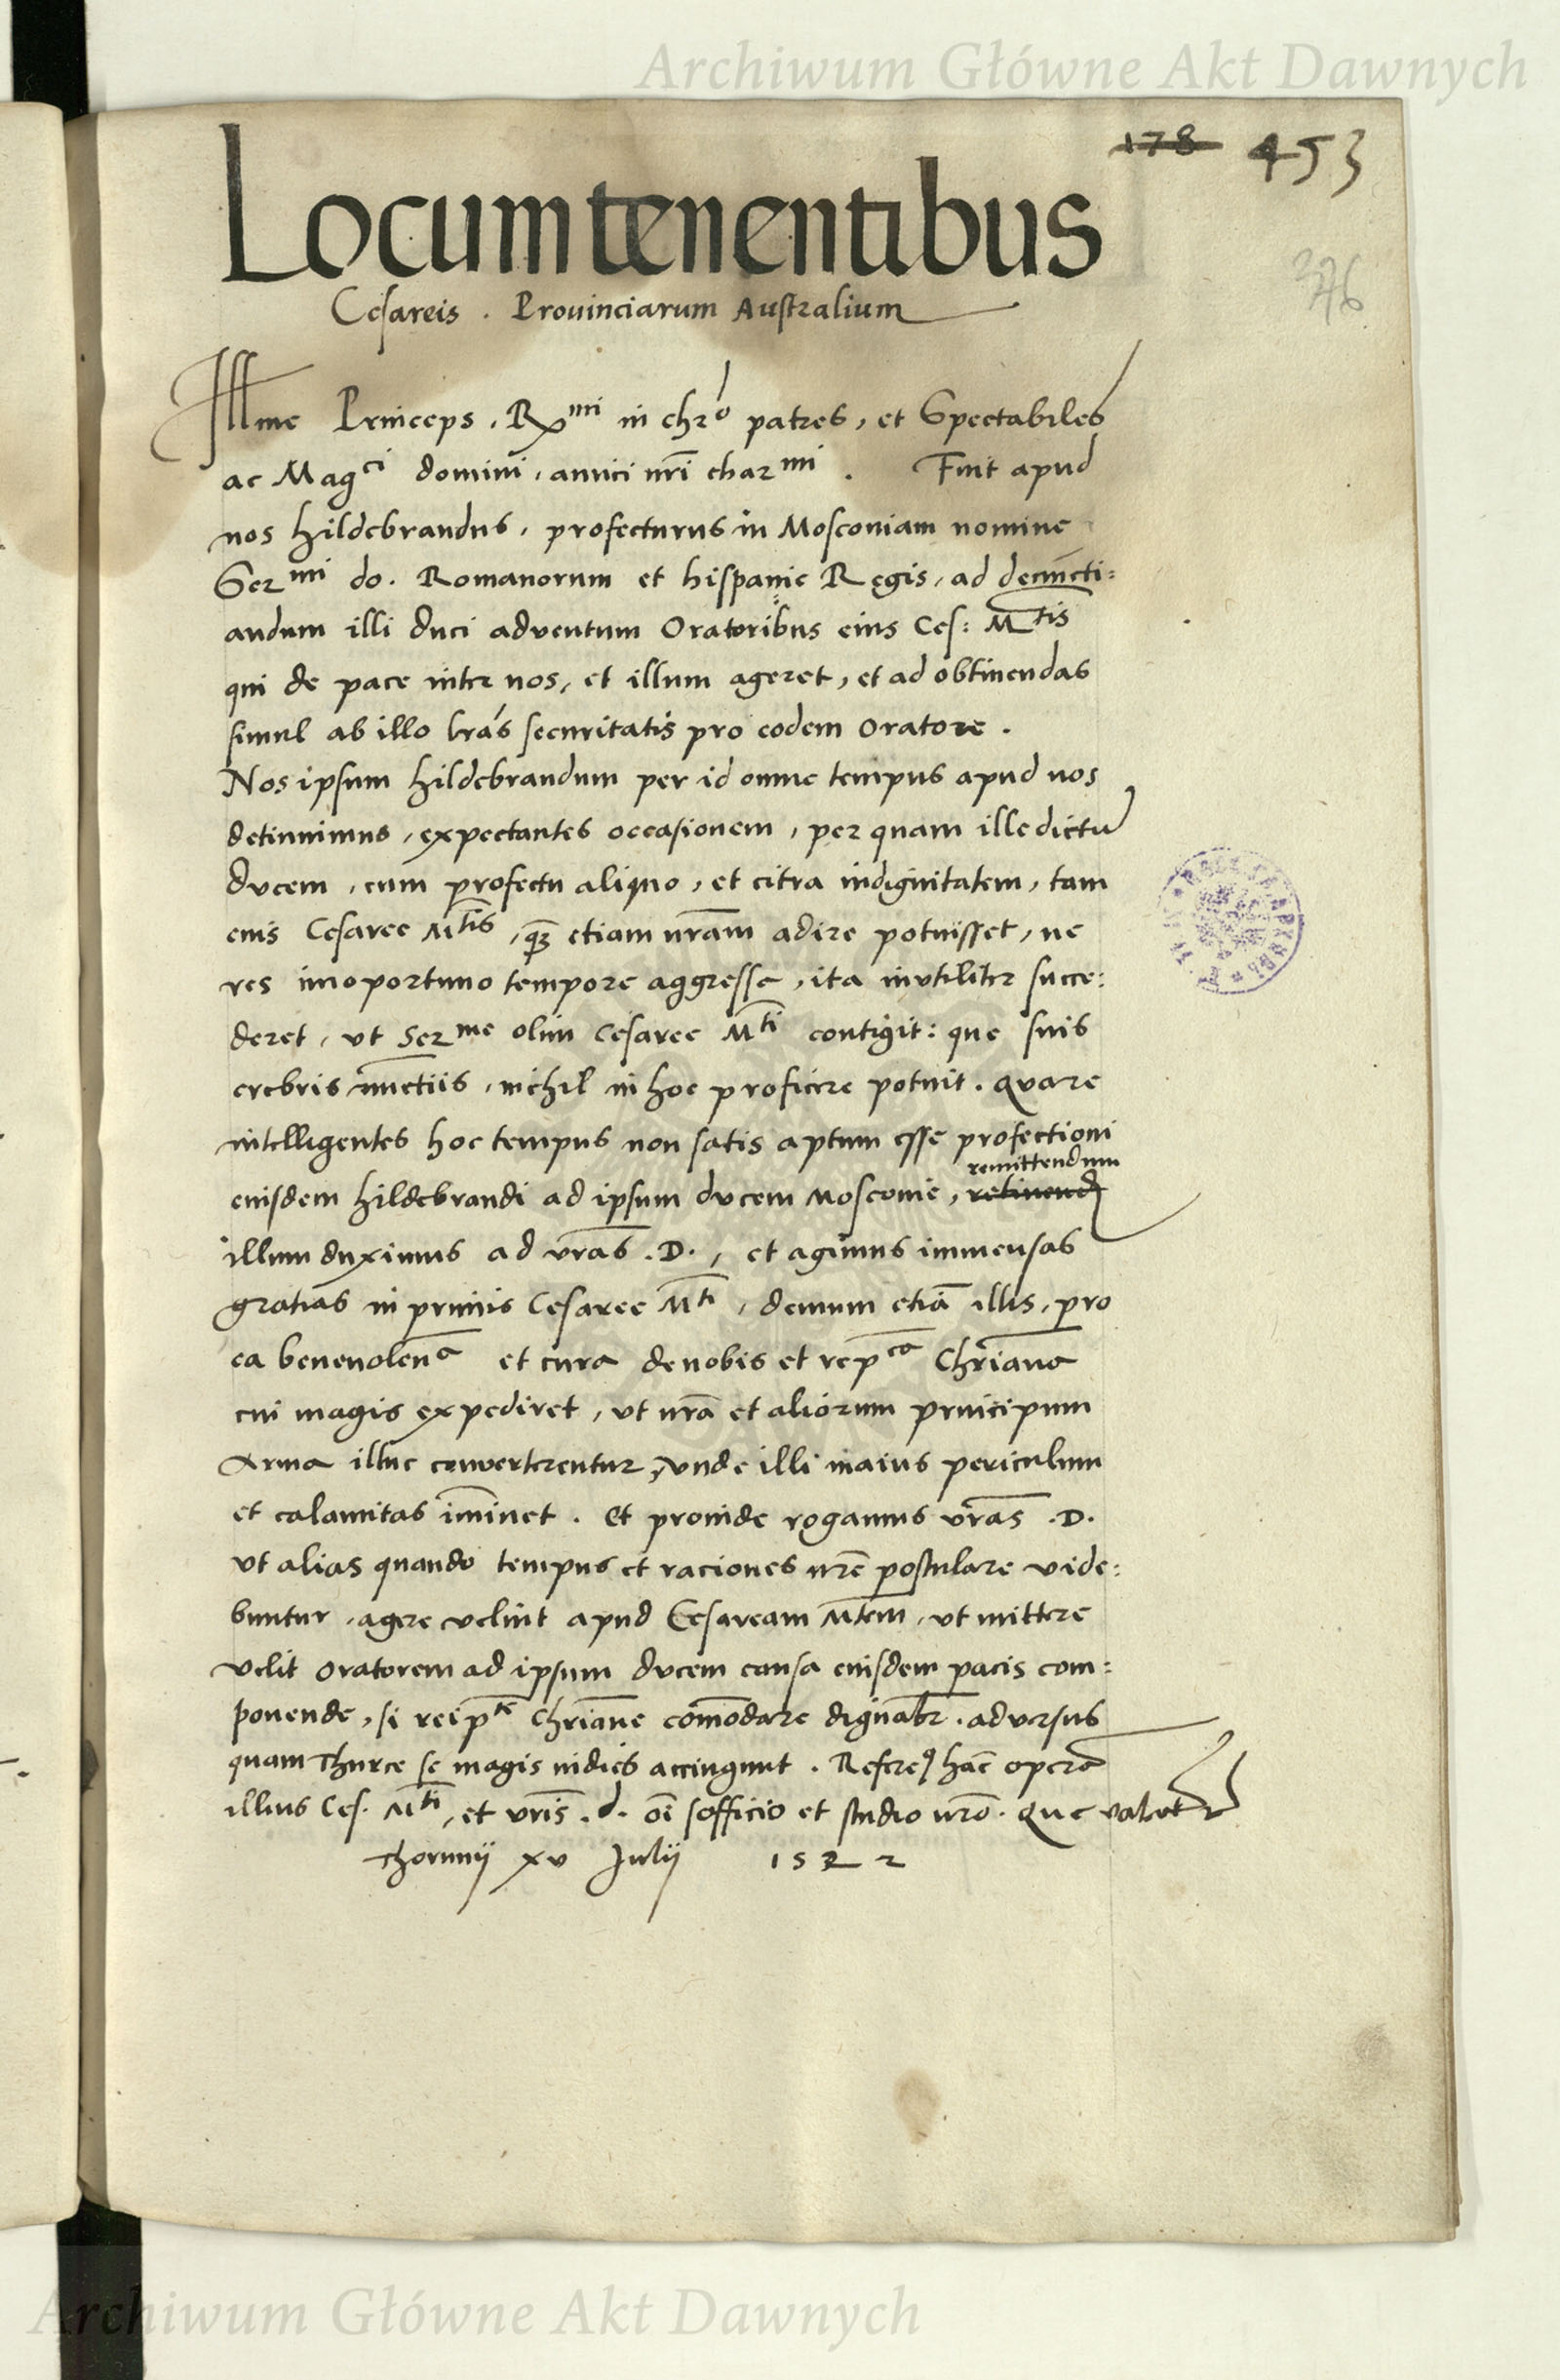 Archiwum Główne Akt Dawnych
178 453
376
Locumtenentibus
Cesareis . Prouinciarum Australium
Illme Princeps . Rmi in chro patres, et Spectabiles
ac Magci domini, amici nri charmi . Fuit apud
nos hildebrandus, profecturus in Mosconiam nomine
Sermi do. Romanorum et hispanie Regis, ad denuncti:
andum illi duci adventum Oratoribus eius Ces: Mtis
qui de pace inter nos, et illum ageret, et ad obtinendas
simul ab illo lras securitatis pro eodem oratore .
Nos ipsum hildebrandum per id omne tempus apud nos
detinuimus, expectantes occasionem, per quam ille dictu
ducem, cum profectu aliquo, et citra indignitatem, tam
eius Cesaree Mtis, q3 etiam nram adire potuisset, ne
res inoportuno tempore aggresse, ita inutiliter succe:
deret, vt Serme olim Cesaree Mti contigit: que suis
crebris nunctiis, nichil in hoc proficere potuit . Quare
intelligentes hoc tempus non satis aptum esse profectioni
remittendum
eiusdem hildebrandi ad ipsum ducem Mosconie, retinend
illum duximus ad vras . D. , et agimus immensas
gratias in primis Cesaree Mti, demum etia illis, pro
ea beneuolena et cura de nobis et repca Chriana
cui magis expediret, vt nra et aliorum principum
Arma illuc converterentur, vnde illi maius periculum
et calamitas iminet . Et proinde rogamus vras . D.
vt alias quando tempus et raciones nre postulare vide:
buntur, agere velint apud Cesaream Mtem, vt mittere
velit oratorem ad ipsum ducem causa eiusdem pacis com:
ponende, si reipce Chriane comodare dignabr . adversus
quam Thurce se magis indies accingunt . Refere9 hac opera
illius Ces. Mti, et vris . d. oi sofficio et studio nro . Que valeat
Thorunij xv Julij 1522
Archiwum Główne Akt Dawnych